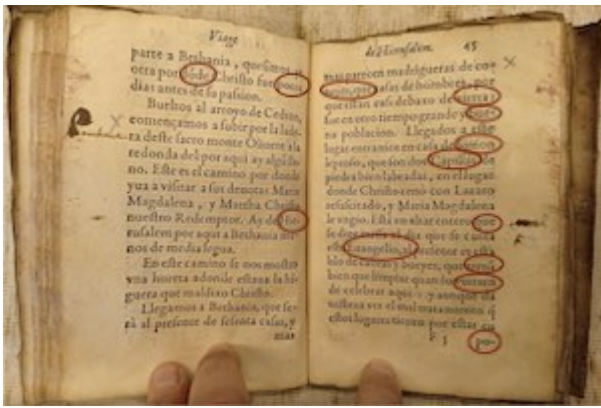 Viage
parte a Bethania, quesimos ir
otra por dõde Christo fue pocos
dias antes de su passion.
Bueltos al arroyo de Cedron,
començamos a subir por la lade
ra deste sacro monte Oliuete a la
redonda del por aqui ay algũ llano
no. Este es el camino por donde
yua a visitar a sus deuotas Maria
Magdalena, y Martha Christo
nuestro Redemptor. Ay de Hie
rusalem por aqui a Bethania me
nos de media legua.
En este camino se nos mostro
vna huerta adonde estaua la hi-
guera que maldixo Christo.
Llegamos a Bethania, que se-
rà al presente de sesenta casas, y
mas
de Hierusalem. 45
mas parecen madrigueras de co
nejos, que casas de hombres, por
que estan casi debaxo de tierra:
fue en otro tiempo grande y
na poblacion. Llegados a este
lugar entramos en casa de Simon
leproso, que son dos Capillas de
piedra bien labradas, en el lugar
donde Christo cenò con Lazaro
resuscitado, y Maria Magdalena
le vngio. Està vn altar entero, que
se dize missa el dia que se canta
este Euangelio, al presente es esta
blo de cabras y bueyes, que
bien que limpiar quando
de celebrar aqui: y aunque da
lastima ver el mal tratamiento q̃
estos lugares tienen por estar en
F 5 po-